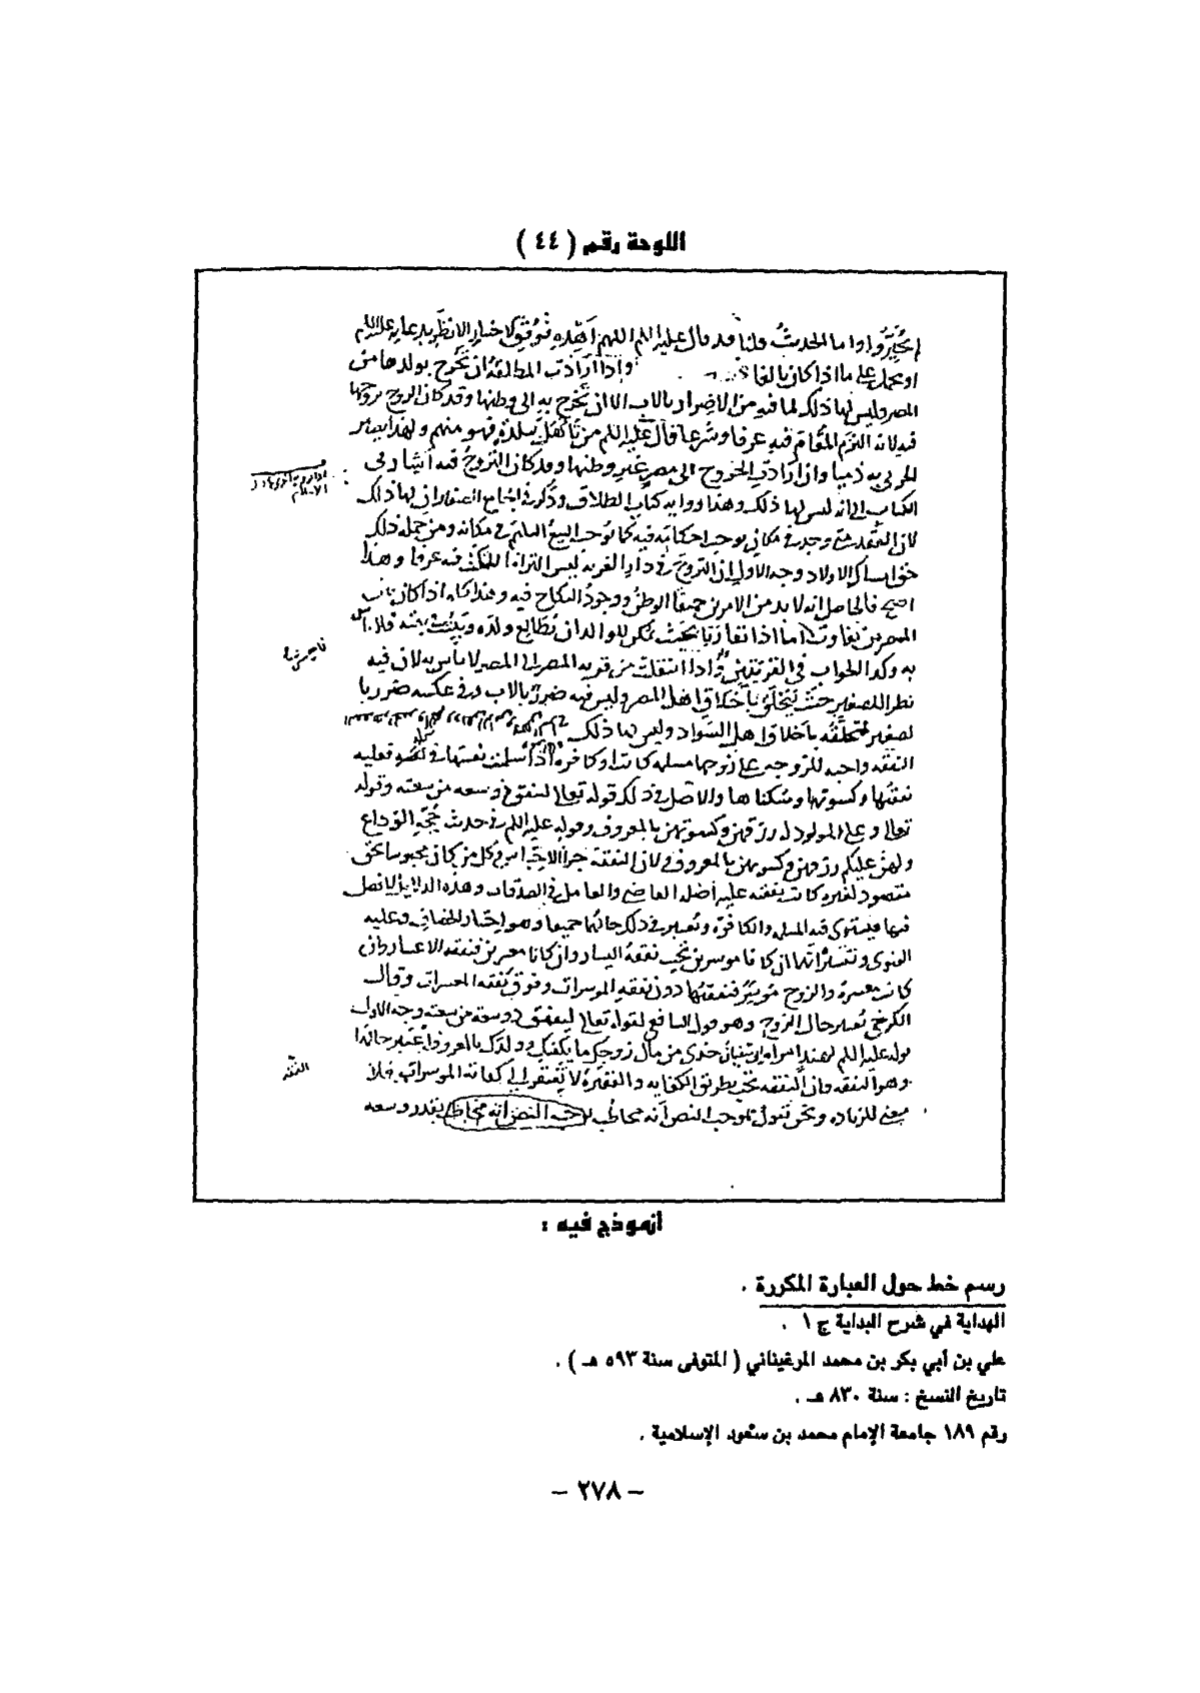 اللوحة رقم ( ٤٤ )
وأما الحديث قلنا قد قال عليه اللم اللهم اهده فوفق لاختيار الانظر بدعايه عليه اللم
او يحمل على ما اذا كان بالغا واذا ارادت المطلقة ان تخرج بولدها من
المصر وليس لها ذلك لما فيه من الاضرار بالاب الا ان تخرج به الى وطنها وقد كان الزوج تزوجها
فيه لانه التزم المقام فيه عرفا وشرعا قال عليه اللم من تأهل ببلدة فهو منهم ولهذا يصير
الحربي به ذميا وان ارادت الخروج الى مصر غير وطنها وقد كان التزوج فيه اشار في
الكتاب الى انه ليس لها ذلك وهذا روايه كتاب الطلاق وذكر في الجامع الصغير ان لها ذلك
لان العقد متى وجد في مكان يوجب احكامه فيه كما يوجب البيع التسليم في مكانه ومن جملة ذلك
حق امساك الاولاد وجه الاول ان التزوج في دار الغربه ليس التزاما للمكث فيه عرفا وهذا
اصح فالحاصل انه لا بد من الامرين جميعا الوطن ووجود النكاح فيه وهذا كله اذا كان بين
المصرين تفاوت اما اذا تقاربا بحيث يمكن للوالد ان يطالع ولده ويبيت في بيته فلا باس
به وكذا الجواب في القريتين ولو انتقلت من قريه المصر الى المصر لا باس به لان فيه
نظرا للصغير حيث يتخلق باخلاق اهل المصر وليس فيه ضرر بالاب وفي عكسه ضرر با
لصغير لتخلقه باخلاق اهل السواد وليس لها ذلك
النفقه واجبه للزوجه على زوجها مسلمه كانت او كافره اذا سلمت نفسها في منزله فعليه
نفقتها وكسوتها وسكناها والاصل في ذلك قوله تعالى لينفق ذو سعه من سعته وقوله
تعالى وعلى المولود له رزقهن وكسوتهن بالمعروف وقوله عليه اللم في حديث حجة الوداع
ولهن عليكم رزقهن وكسوتهن بالمعروف ولان النفقه جزاء الاحتباس وكل من كان محبوسا بحق
مقصود لغيره كانت نفقته عليه اصله القاضي والعامل في الصدقات وهذه الدلايل لا فصل
فيها فيستوي فيه المسلمه والكافره ويعتبر في ذلك حالهما جميعا وهو اختيار الخصاف وعليه
الفتوى وتفسيره انهما ان كانا موسرين تجب نفقة اليسار وان كانا معسرين فنفقه الاعسار وان
كانت معسرة والزوج موسر فنفقتها دون نفقه الموسرات وفوق نفقه المعسرات وقال
الكرخي يعتبر حال الزوج وهو قول الشافعي لقوله تعالى لينفق ذو سعة من سعته وجه الاول
قوله عليه اللم لهند امراة ابي سفيان خذي من مال زوجك ما يكفيك وولدك بالمعروف اعتبر حالها
وهو الفقه فان النفقه تجب بطريق الكفايه والفقيرة لا تفتقر الى كفاية الموسرات فلا
معنى للزياده ونحن نقول بموجب النص انه يخاطب بموجب النص انه يخاطب بقدر وسعه
النفقه
أنموذج فيه :
رسم خط حول العبارة المكررة .
الهداية في شرح البداية ج ١ .
علي بن أبي بكر بن محمد المرغيناني ( المتوفى سنة ٥٩٣ هـ ) .
تاريخ النسخ : سنة ٨٣٠ هـ .
رقم ١٨٩ جامعة الإمام محمد بن سعود الإسلامية .
– ٢٧٨ –